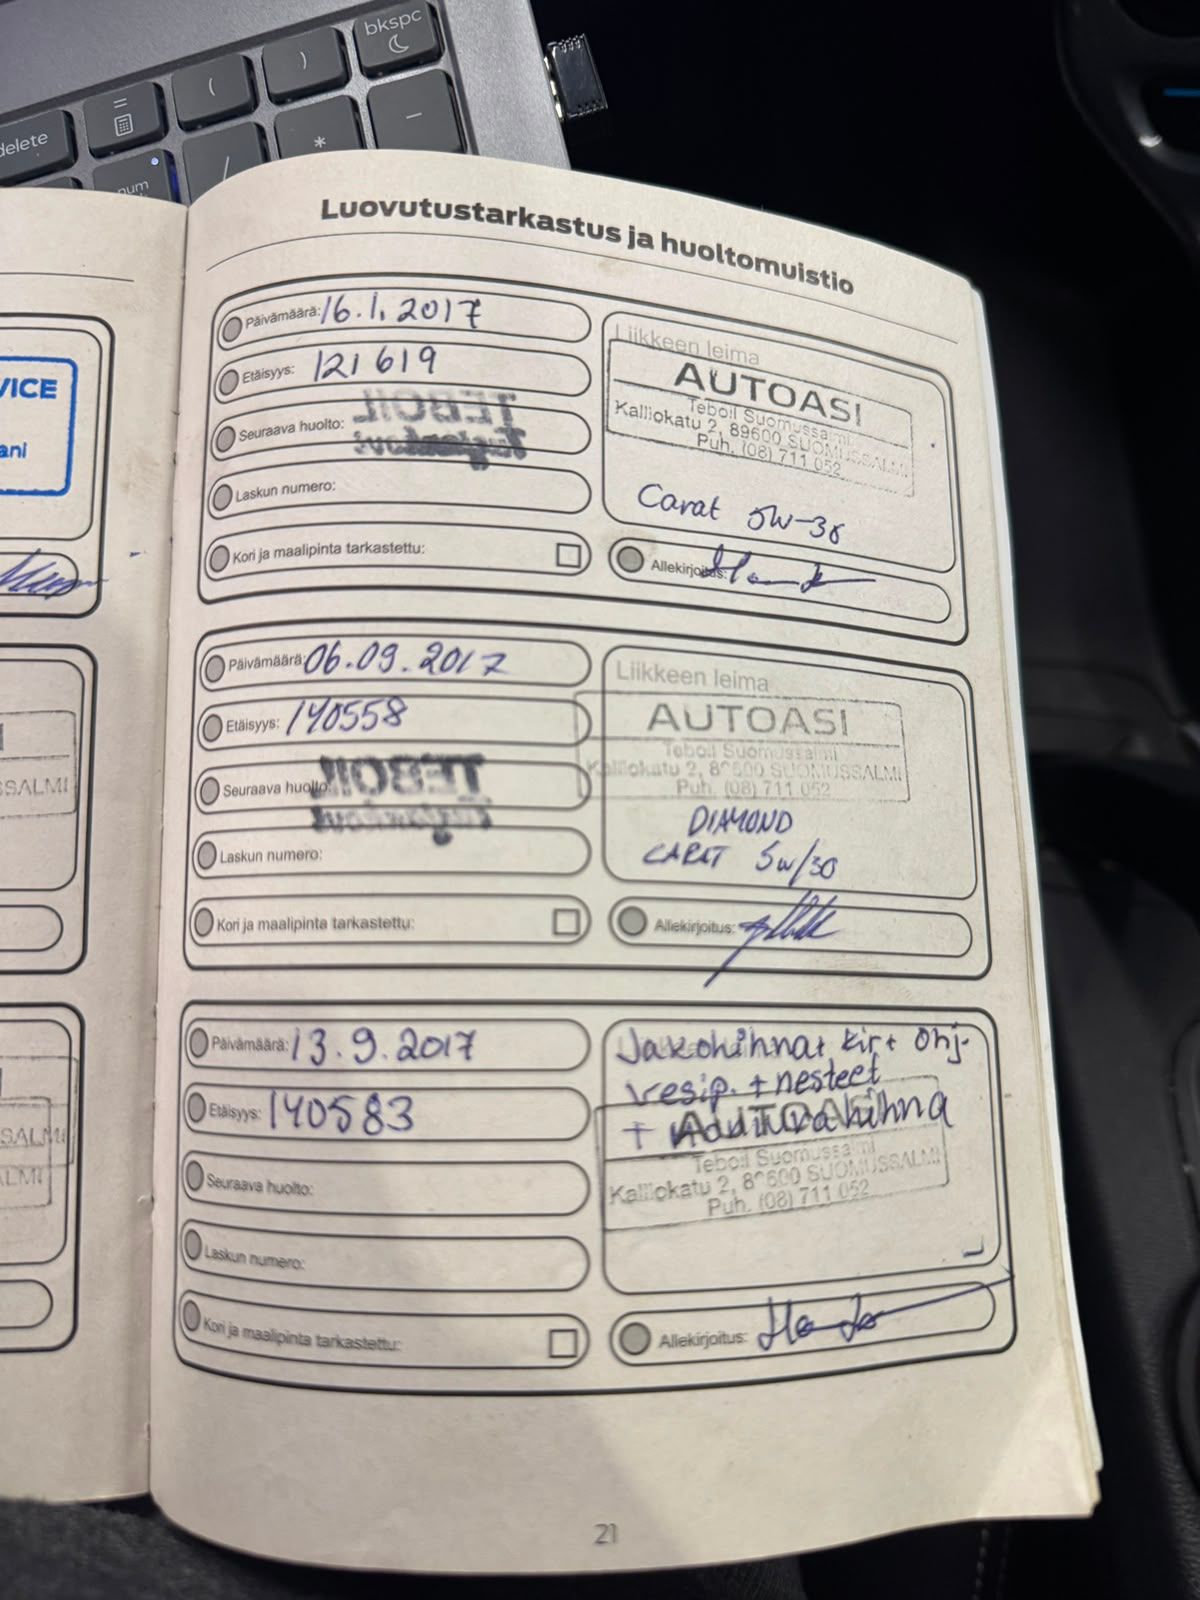 bkspc
delete
=
(
)
num
/
*
-
Luovutustarkastus ja huoltomuistio
Päivämäärä: 16.1.2017
Etäisyys: 121 619
Seuraava huolto:
TEBOIL
Laskun numero:
Kori ja maalipinta tarkastettu:
Liikkeen leima
AUTOASI
Teboil Suomussalmi
Kalliokatu 2, 89600 SUOMUSSALMI
Puh. (08) 711 052
Carat 5W-30
Allekirjoitus:
Päivämäärä: 06.09.2017
Etäisyys: 140558
Seuraava huolto:
TEBOIL
Laskun numero:
Kori ja maalipinta tarkastettu:
Liikkeen leima
AUTOASI
Teboil Suomussalmi
Kalliokatu 2, 89600 SUOMUSSALMI
Puh. (08) 711 052
DIAMOND
CARAT 5w/30
Allekirjoitus:
Päivämäärä: 13.9.2017
Etäisyys: 140583
Seuraava huolto:
Laskun numero:
Kori ja maalipinta tarkastettu:
Jakohihna+ kir+ ohj.
vesip. + nesteet
+ moniurahihna
AUTOASI
Teboil Suomussalmi
Kalliokatu 2, 89600 SUOMUSSALMI
Puh. (08) 711 052
Allekirjoitus:
21
VICE
ani
SSALMI
SALMI
ALMI